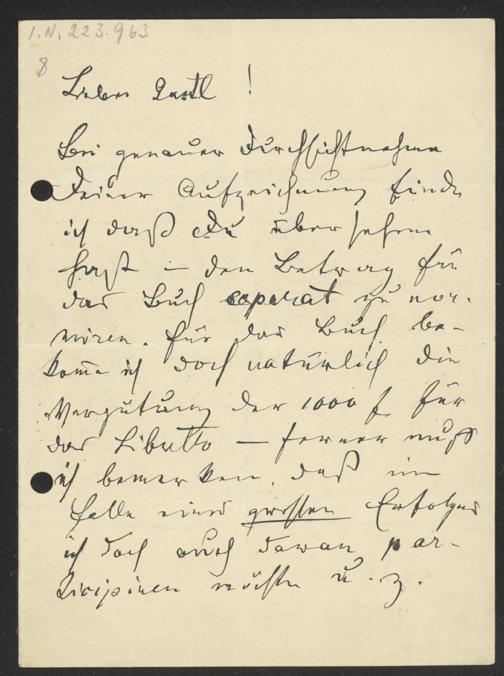 I.N. 223.963
8
Lieber Gustl!
Bei genauer Durchsichtnahme
Deiner Aufzeichnung finde
ich daß Du übersehen
hast – den Betrag für
das Buch separat zu nor-
mieren. Für das Buch be-
komme ich doch natürlich die
Vergütung der 1000 f für
das Libretto – ferner muß
ich bemerken, daß im
Falle eines grossen Erfolges
ich doch auch daran par-
ticipiren möchte u. z.